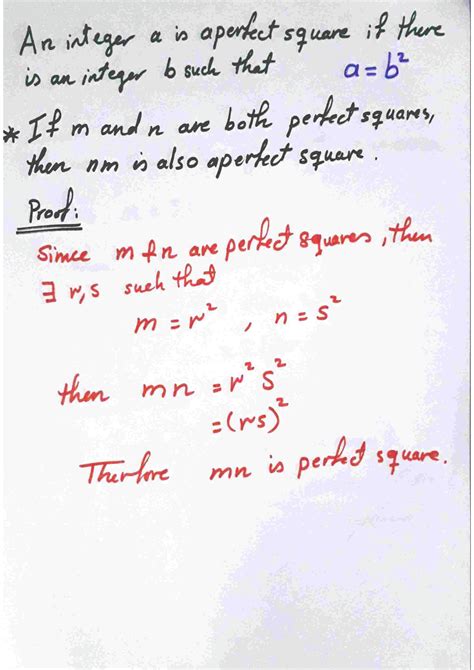 An integer a is aperfect square if there
is an integer b such that a = b²
* If m and n are both perfect squares,
then nm is also aperfect square.
Proof:
Simce m & n are perfect squares, then
∃ r, s such that
m = r² , n = s²
then mn = r² s²
= (rs)²
Therfore mn is perfect square.